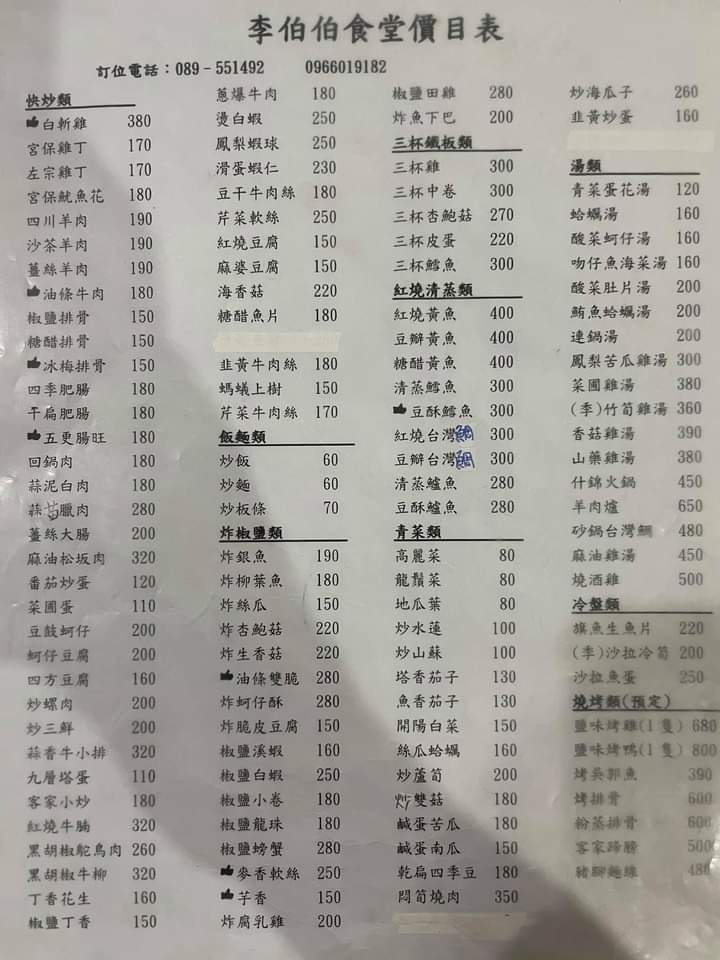 李伯伯食堂價目表
訂位電話：089-551492 0966019182
快炒類
白斬雞 380
宮保雞丁 170
左宗雞丁 170
宮保魷魚花 180
四川羊肉 190
沙茶羊肉 190
薑絲羊肉 190
油條牛肉 180
椒鹽排骨 150
糖醋排骨 150
冰梅排骨 150
四季肥腸 180
干扁肥腸 180
五更腸旺 180
回鍋肉 180
蒜泥白肉 180
蒜苗臘肉 280
薑絲大腸 200
麻油松坂肉 320
番茄炒蛋 120
菜圃蛋 110
豆鼓蚵仔 200
蚵仔豆腐 200
四方豆腐 160
炒螺肉 200
炒三鮮 200
蒜香牛小排 320
九層塔蛋 110
客家小炒 180
紅燒牛腩 320
黑胡椒鴕鳥肉 260
黑胡椒牛柳 320
丁香花生 160
椒鹽丁香 150
蔥爆牛肉 180
燙白蝦 250
鳳梨蝦球 250
滑蛋蝦仁 230
豆干牛肉絲 180
芹菜軟絲 250
紅燒豆腐 150
麻婆豆腐 150
海香菇 220
糖醋魚片 180
韭黃牛肉絲 180
螞蟻上樹 150
芹菜牛肉絲 170
飯麵類
炒飯 60
炒麵 60
炒板條 70
炸椒鹽類
炸銀魚 190
炸柳葉魚 180
炸絲瓜 150
炸杏鮑菇 220
炸生香菇 220
油條雙脆 280
炸蚵仔酥 280
炸脆皮豆腐 150
椒鹽溪蝦 160
椒鹽白蝦 250
椒鹽小卷 180
椒鹽龍珠 180
椒鹽螃蟹 280
麥香軟絲 250
芋香 150
炸腐乳雞 200
椒鹽田雞 280
炸魚下巴 200
三杯鐵板類
三杯雞 300
三杯中卷 300
三杯杏鮑菇 270
三杯皮蛋 220
三杯鱈魚 300
紅燒清蒸類
紅燒黃魚 400
豆瓣黃魚 400
糖醋黃魚 400
清蒸鱈魚 300
豆酥鱈魚 300
紅燒台灣鯛 300
豆瓣台灣鯛 300
清蒸鱸魚 280
豆酥鱸魚 280
青菜類
高麗菜 80
龍鬚菜 80
地瓜葉 80
炒水蓮 100
炒山蘇 100
塔香茄子 130
魚香茄子 130
開陽白菜 150
絲瓜蛤蠣 160
炒蘆筍 200
炒雙菇 180
鹹蛋苦瓜 180
鹹蛋南瓜 150
乾扁四季豆 180
悶筍燒肉 350
炒海瓜子 260
韭黃炒蛋 160
湯類
青菜蛋花湯 120
蛤蠣湯 160
酸菜蚵仔湯 160
吻仔魚海菜湯 160
酸菜肚片湯 200
鮪魚蛤蠣湯 200
連鍋湯 200
鳳梨苦瓜雞湯 300
菜圃雞湯 380
(季)竹筍雞湯 360
香菇雞湯 390
山藥雞湯 380
什錦火鍋 450
羊肉爐 650
砂鍋台灣鯛 480
麻油雞湯 450
燒酒雞 500
冷盤類
旗魚生魚片 220
(季)沙拉冷筍 200
沙拉魚蛋 250
燒烤類(預定)
鹽味烤雞(1隻) 680
鹽味烤鴨(1隻) 800
烤吳郭魚 390
烤排骨 600
粉蒸排骨 600
客家蹄膀 500
豬腳麵線 480